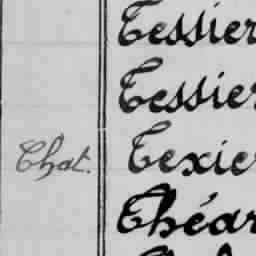 Tessier
Tessier
Chat. Texier
Théar